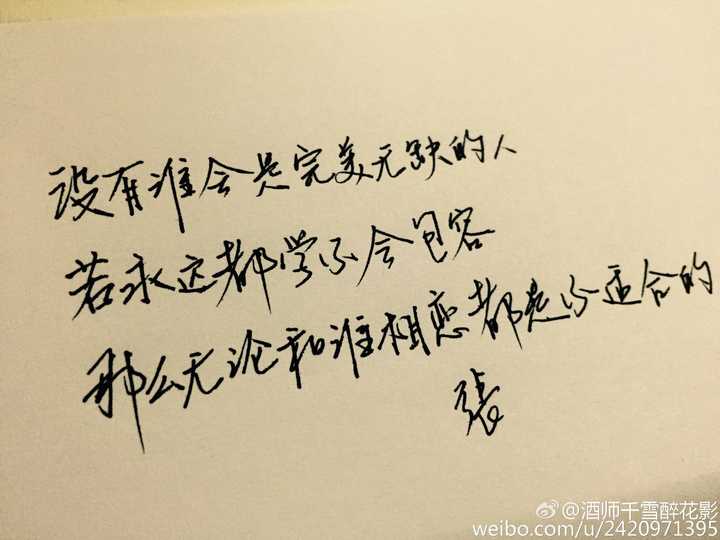 没有谁会是完美无缺的人
若永远都学不会包容
那么无论和谁相恋都是不适合的
張
@酒师千雪醉花影
weibo.com/u/2420971395